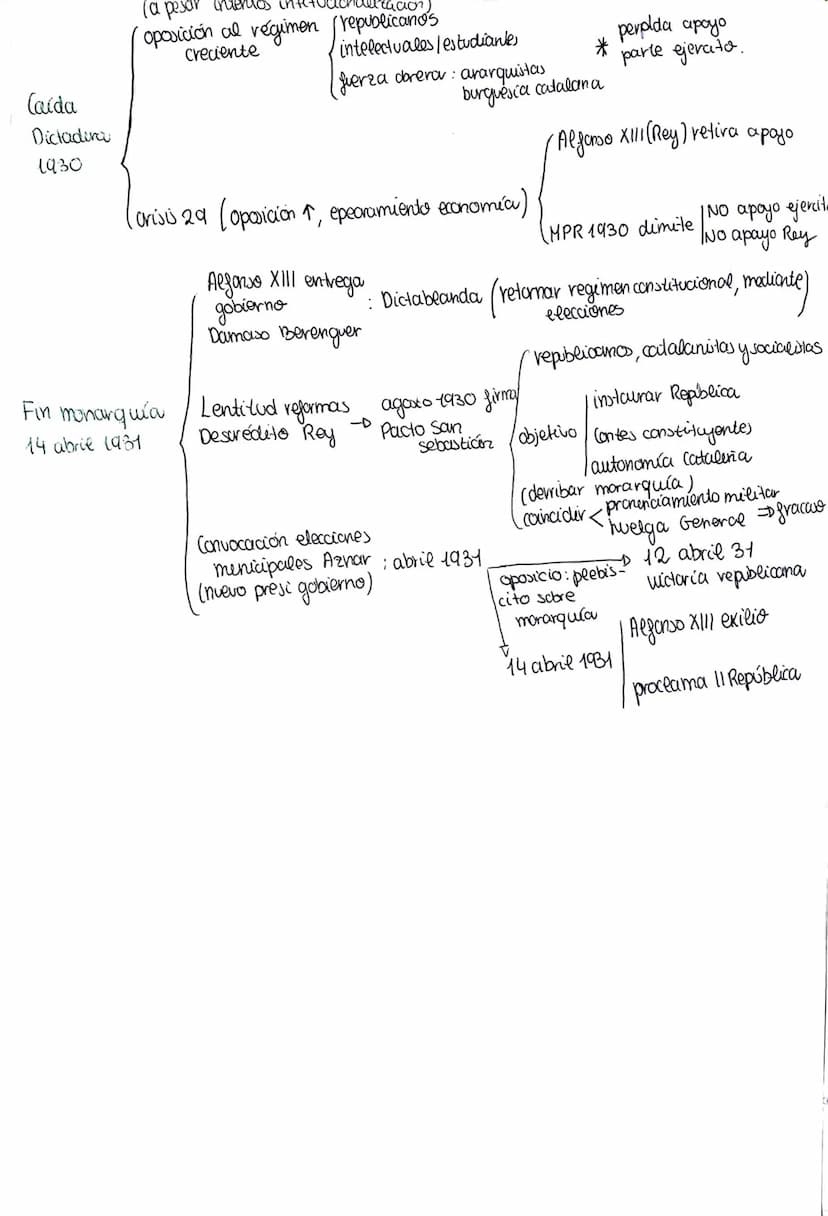 (a pesar intentos institucionalización)
oposición al régimen
creciente
republicanos
intelectuales/estudiantes
fuerza obrera: anarquistas
burguesía catalana
* perdida apoyo
parte ejercito.
Caída
Dictadura
1930
crisis 29 (oposición ↑, epeoramiento economía)
Alfonso XIII (Rey) retira apoyo
MPR 1930 dimite
NO apoyo ejercito
No apoyo Rey
Fin monarquía
14 abril 1931
Alfonso XIII entrega
gobierno
Damaso Berenguer
: Dictablanda (retornar regimen constitucional, mediante)
elecciones
Lentitud reformas
Descrédito Rey
→ agosto 1930 firma
Pacto San
sebastián
republicanos, catalanistas y socialistas
objetivo
instaurar República
Cortes constituyentes
autonomía Cataluña
(derribar monarquía)
coincidir < pronunciamiento militar
huelga General ⇒ fracaso
Convocación elecciones
municipales Aznar : abril 1931
(nuevo presi gobierno)
oposicio: plebis-
cito sobre
monarquía
12 abril 31
victoria republicana
14 abril 1931
Alfonso XIII exilio
proclama II República